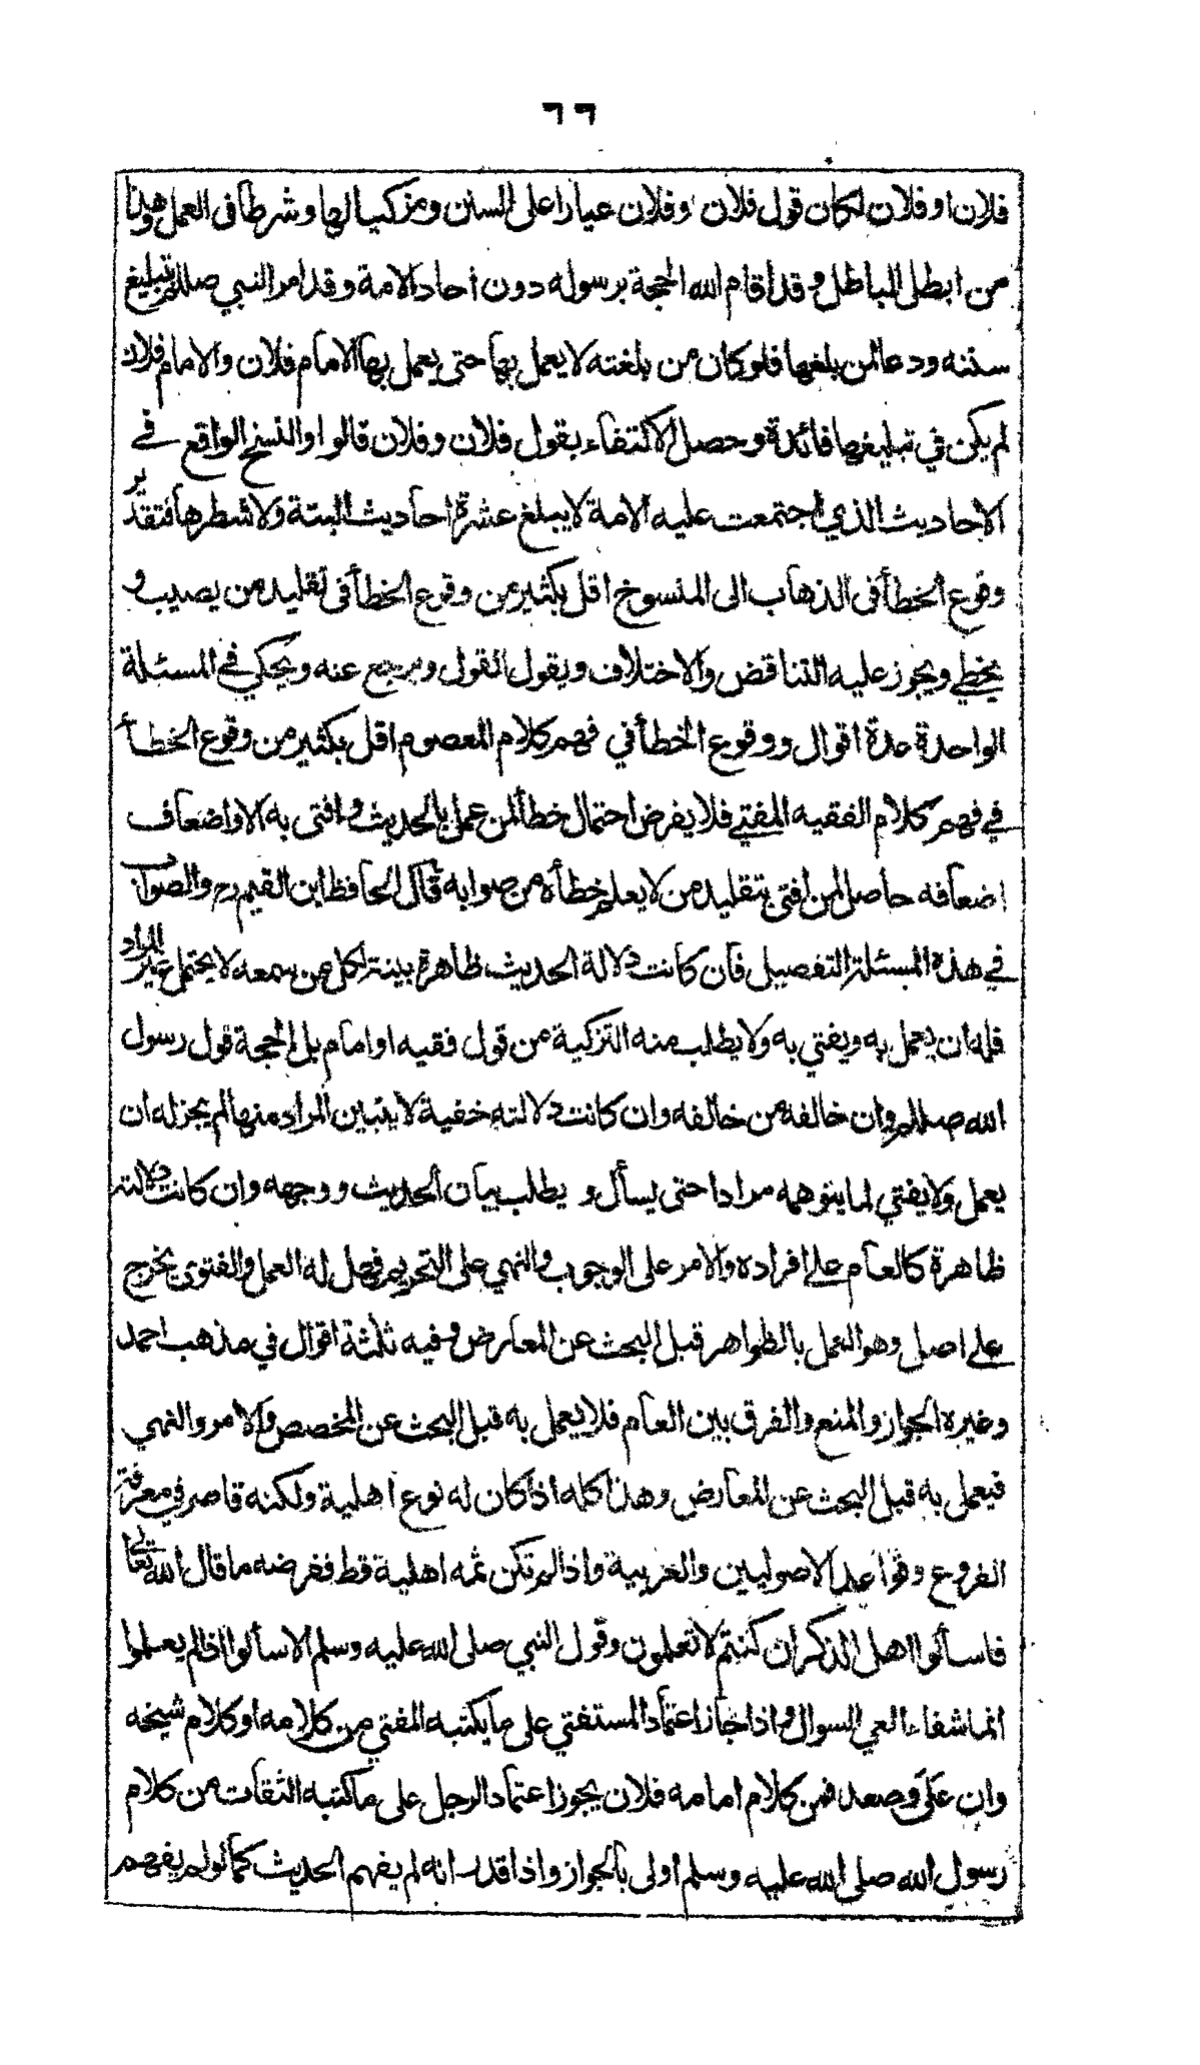 ٦٦
فلان او فلان لكان قول فلان وفلان عيارا على السنن ومزكيا لها وشرطا فى العمل وهذا
من ابطل الباطل وقد اقام الله الحجة برسوله دون احاد الامة وقد امر النبي صللم تبليغ
سننه ودعا لمن بلغها فلو كان من بلغته لا يعمل بها حتى يعمل بها الامام فلان والامام فلان
لم يكن في تبليغها فائدة وحصل الاكتفاء بقول فلان وفلان قالوا والنسخ الواقع في
الاحاديث الذي اجتمعت عليه الامة لا يبلغ عشرة احاديث البتة ولا شطرها فتقدير
وقوع الخطأ فى الذهاب الى المنسوخ اقل بكثير من وقوع الخطأ فى تقليد من يصيب و
يخطي ويجوز عليه التناقض والاختلاف ويقول القول ويرجع عنه ويحكي في المسئلة
الواحدة عدة اقوال ووقوع الخطأ في فهم كلام المعصوم اقل بكثير من وقوع الخطأ
في فهم كلام الفقيه المفتي فلا يفرض احتمال خطأ لمن عمل بالحديث وافتى به الا واضعاف
اضعافه حاصل لمن افتى بتقليد من لا يعلم خطأه من صوابه قال الحافظ ابن القيم رح والصواب
في هذه المسئلة التفصيل فان كانت دلالة الحديث ظاهرة بينة لكل من سمعه لا يحتمل غير المراد
فله ان يعمل به ويفتي به ولا يطلب منه التزكية من قول فقيه او امام بل الحجة قول رسول
الله صللم وان خالفه من خالفه وان كانت دلالته خفية لا يتبين المراد منها لم يجز له ان
يعمل ولا يفتي لما يتوهمه مرادا حتى يسأل و يطلب بيان الحديث ووجهه وان كانت دلالته
ظاهرة كالعام على افراده والامر على الوجوب والنهي على التحريم فهل له العمل والفتوى يخرج
على اصل وهو العمل بالظواهر قبل البحث عن المعارض وفيه ثلثة اقوال في مذهب احمد
وغيره الجواز والمنع والفرق بين العام فلا يعمل به قبل البحث عن المخصص والامر والنهي
فيعمل به قبل البحث عن المعارض وهذا كله اذا كان له نوع اهلية ولكنه قاصر في معرفة
الفروع وقواعد الاصوليين والعربية واذا لم تكن ثمه اهلية قط ففرضه ما قال الله تعالى
فاسألوا اهل الذكر ان كنتم لا تعلمون وقول النبي صلى الله عليه وسلم الا سألوا اذا لم يعلموا
انما شفاء العي السوال واذا جاز اعتماد المستفتي على ما يكتبه المفتي من كلامه او كلام شيخه
وان علا وصعد فمن كلام امامه فلان يجوز اعتماد الرجل على ما كتبه الثقات من كلام
رسول الله صلى الله عليه وسلم اولى بالجواز واذا قدر انه لم يفهم الحديث كما لو لم يفهم